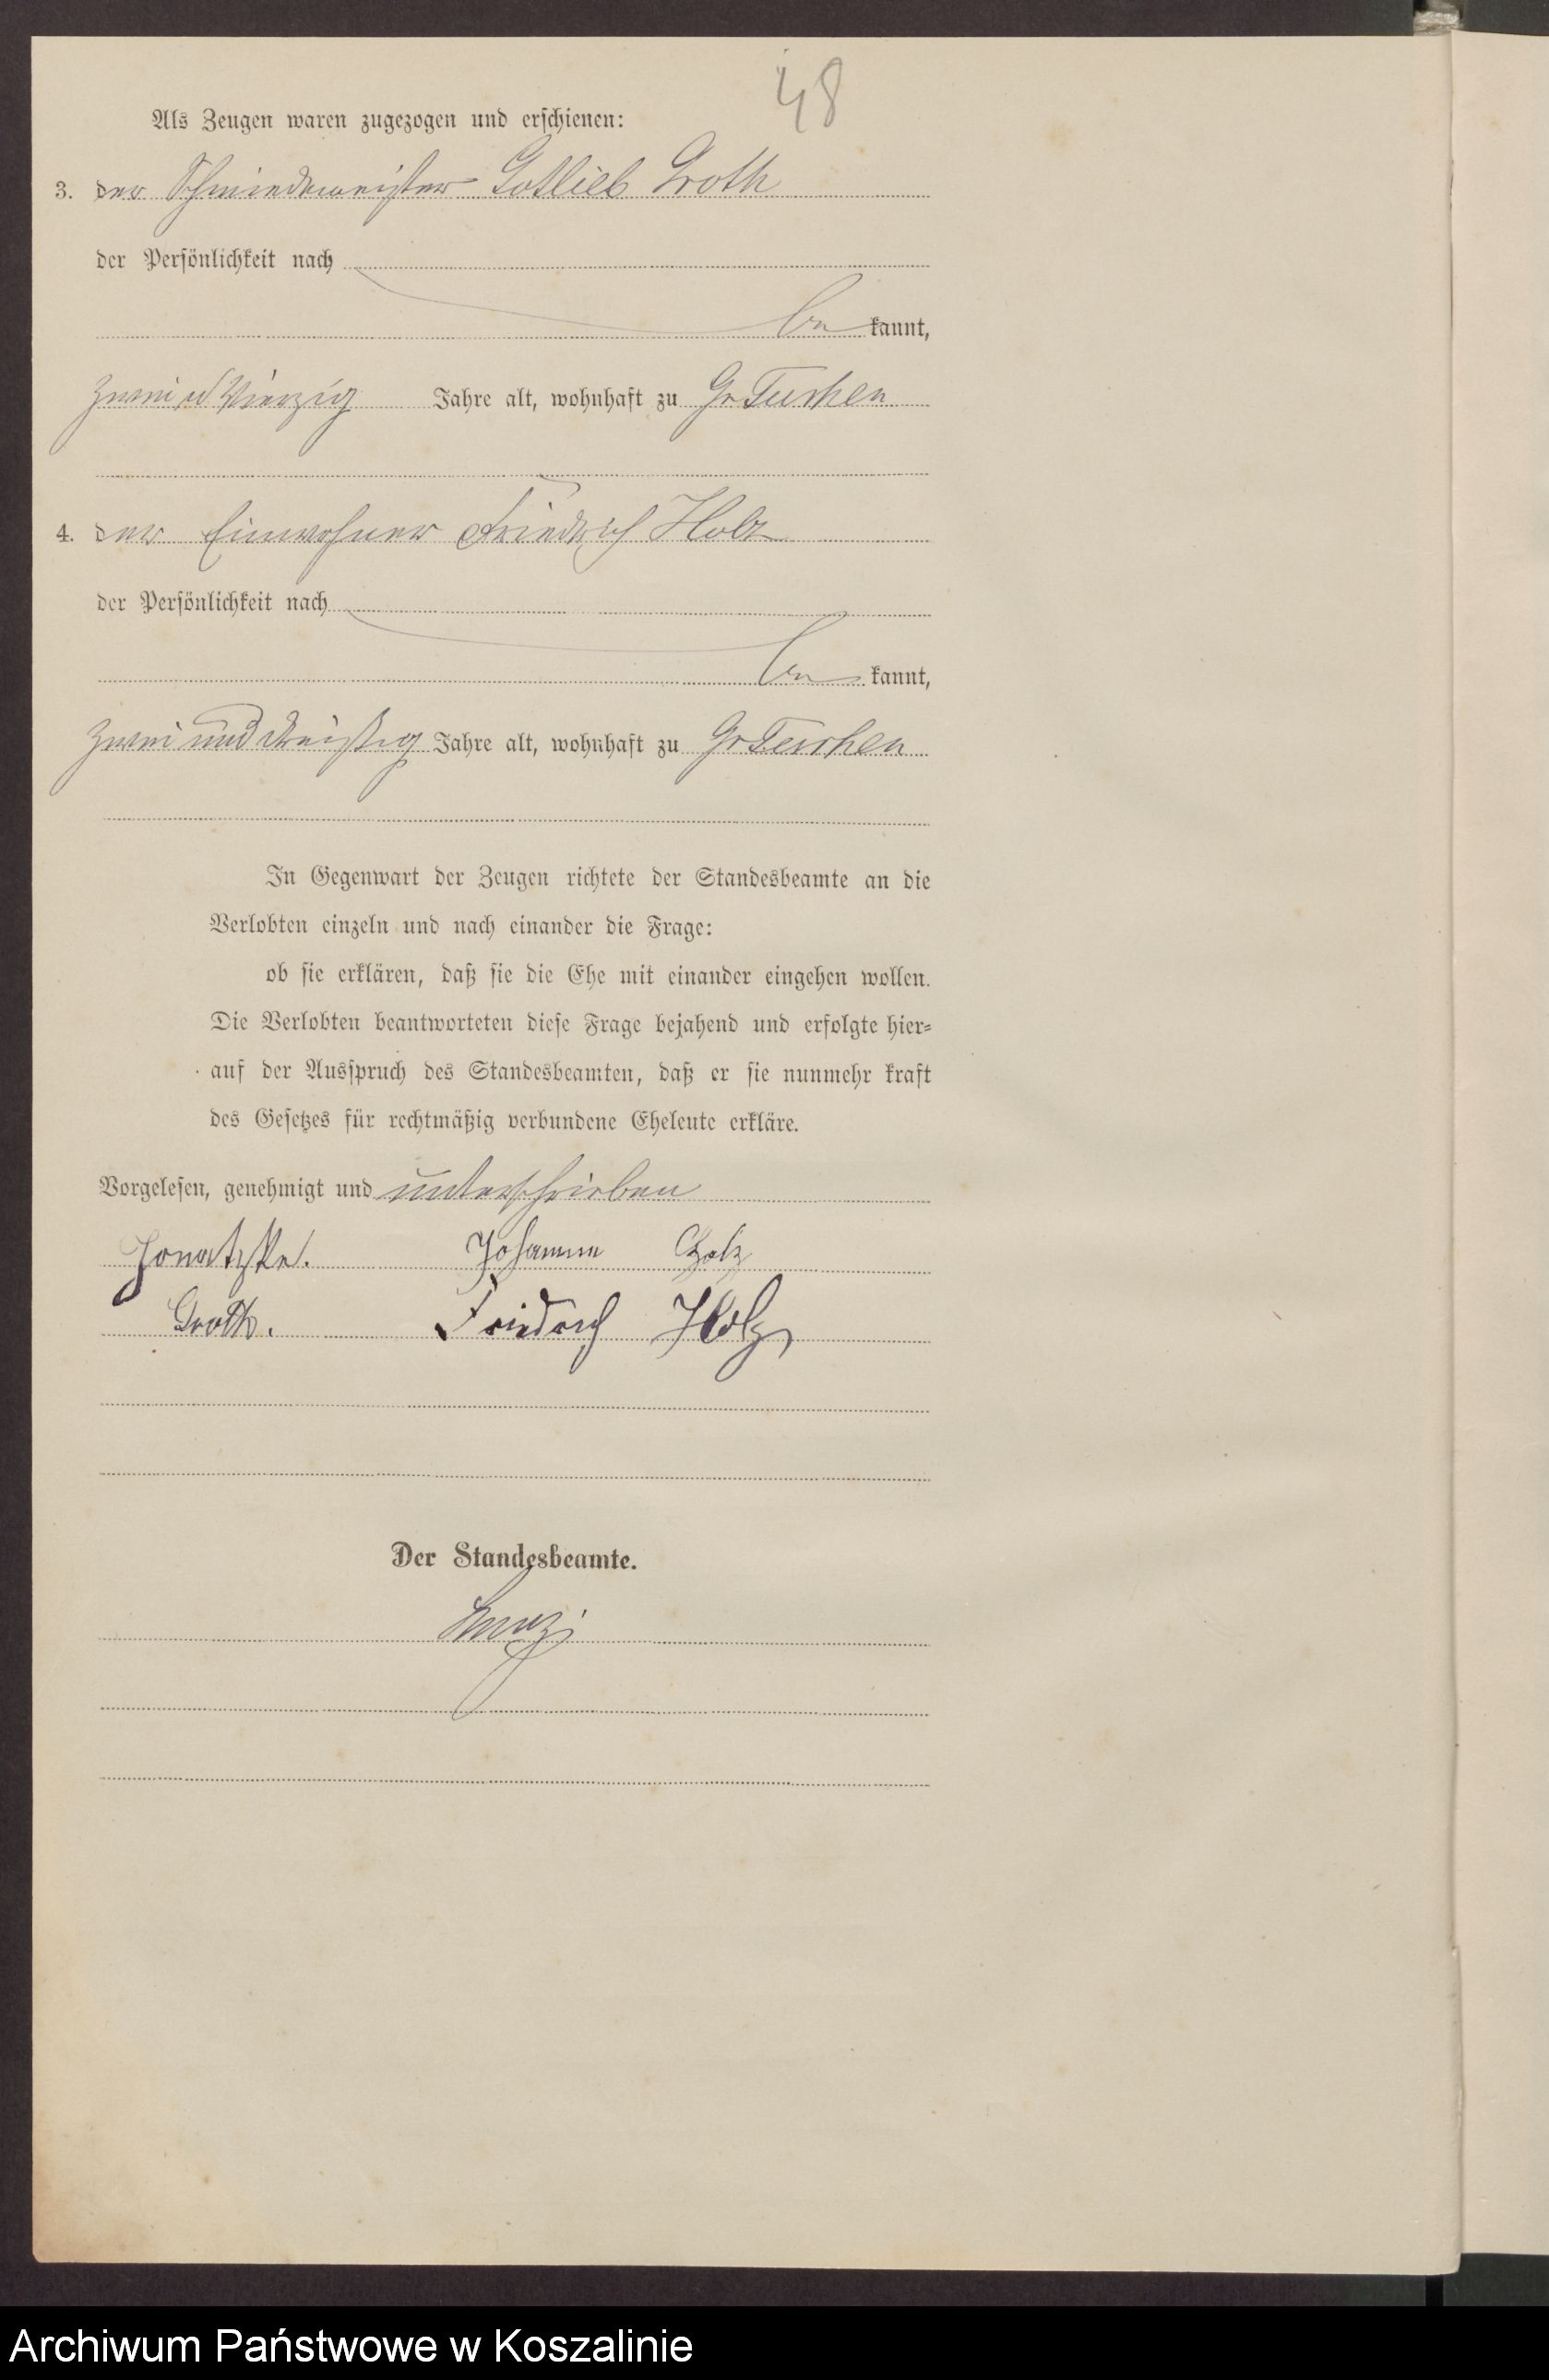 48
Als Zeugen waren zugezogen und erschienen:
3. der Schmiedemeister Gottlieb Groth
der Persönlichkeit nach
be kannt,
zwei u Vierzig Jahre alt, wohnhaft zu Gr Tuchen
4. der Einwohner Friedrich Holz
der Persönlichkeit nach
be kannt,
zwei und dreißig Jahre alt, wohnhaft zu Gr Tuchen
In Gegenwart der Zeugen richtete der Standesbeamte an die
Verlobten einzeln und nach einander die Frage:
ob sie erklären, daß sie die Ehe mit einander eingehen wollen.
Die Verlobten beantworteten diese Frage bejahend und erfolgte hier=
auf der Ausspruch des Standesbeamten, daß er sie nunmehr kraft
des Gesetzes für rechtmäßig verbundene Eheleute erkläre.
Vorgelesen, genehmigt und unterschrieben
Johann
Groth. Friedrich Holz
Der Standesbeamte.
Archiwum Państwowe w Koszalinie